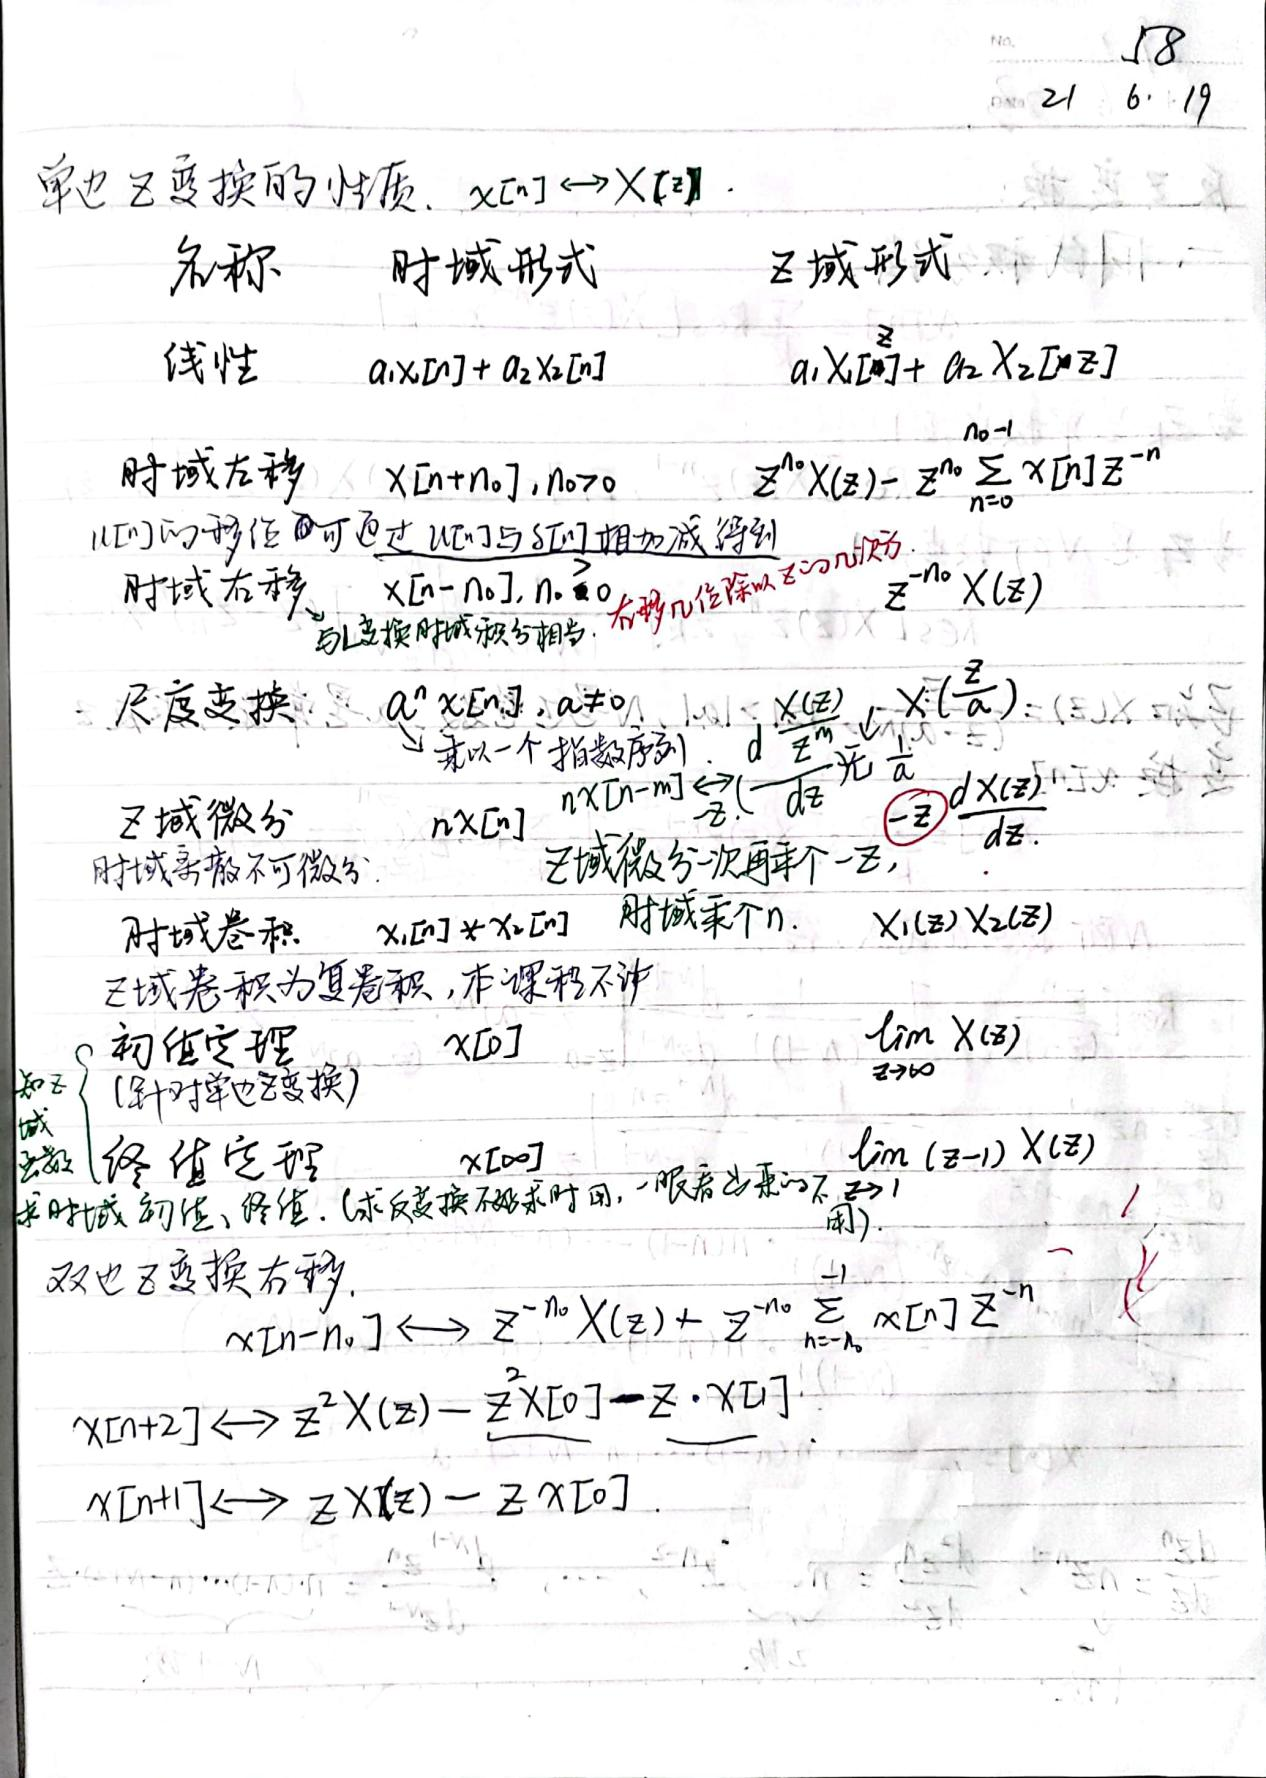 58
21 6. 19
单边Z变换的性质. x[n] ↔ X[z].
名称 时域形式 Z域形式
线性 a₁x₁[n] + a₂x₂[n] a₁X₁[z] + a₂X₂[z]
时域左移 x[n+n₀], n₀>0 z^{n₀}X(z) - z^{n₀} ∑_{n=0}^{n₀-1} x[n]z^{-n}
u[n]的移位可通过u[n]与δ[n]相加减得到
时域右移 x[n-n₀], n₀>0 右移n位除以z的n次方. z^{-n₀}X(z)
与L变换时域积分相当.
尺度变换 aⁿx[n], a≠0 X(z/a)
乘以一个指数序列. 无 1/a
nx[n-m] ↔ -z·(d (X(z)/z^m) / dz)
Z域微分 nx[n] -z dX(z)/dz.
时域离散不可微分. Z域微分一次再乘个-z,
时域乘个n.
时域卷积 x₁[n] * x₂[n] X₁(z)X₂(z)
Z域卷积为复卷积,本课程不讲
初值定理 x[0] lim_{z→∞} X(z)
(针对单边Z变换)
终值定理 x[∞] lim_{z→1} (z-1)X(z)
知Z域函数求时域初值、终值.(求反变换不好求时用,一眼看出来的不用).
双边Z变换右移.
x[n-n₀] ↔ z^{-n₀}X(z) + z^{-n₀} ∑_{n=-n₀}^{-1} x[n]z^{-n}
x[n+2] ↔ z²X(z) - z²x[0] - z·x[1].
x[n+1] ↔ zX(z) - zx[0].